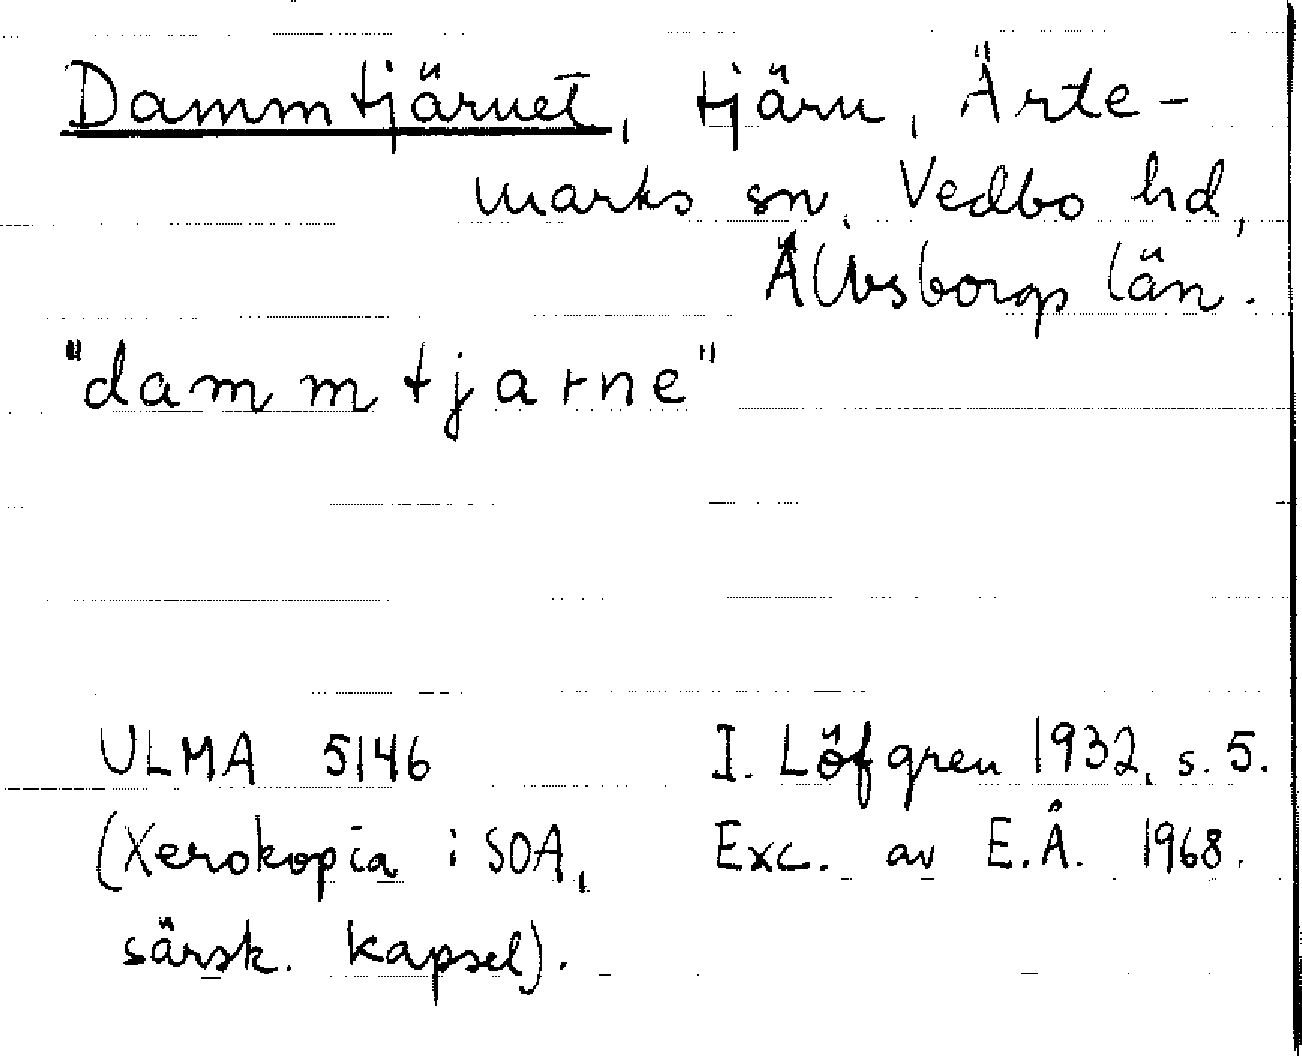 Dammtjärnet, tjärn, Ärte-
marks sn. Vedbo hd,
Älvsborgs län.
"dammtjarne"
ULMA 5146 I. Löfgren 1932, s. 5.
(Xerokopia i SOA, Exc. av E.Å. 1968.
särsk. kapsel).